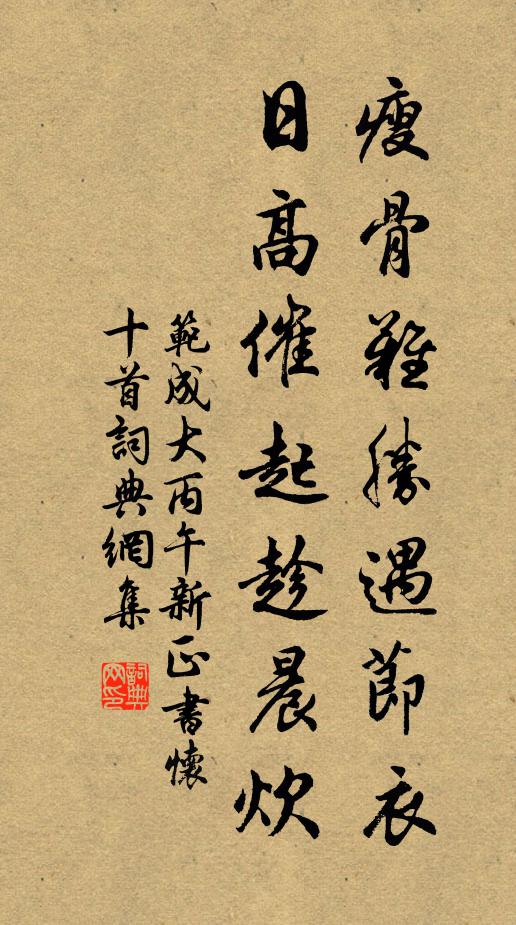 瘦骨難勝遇節衣
日高催起趁晨炊
範成大丙午新正書懷
十首詞典網集
詞典網印